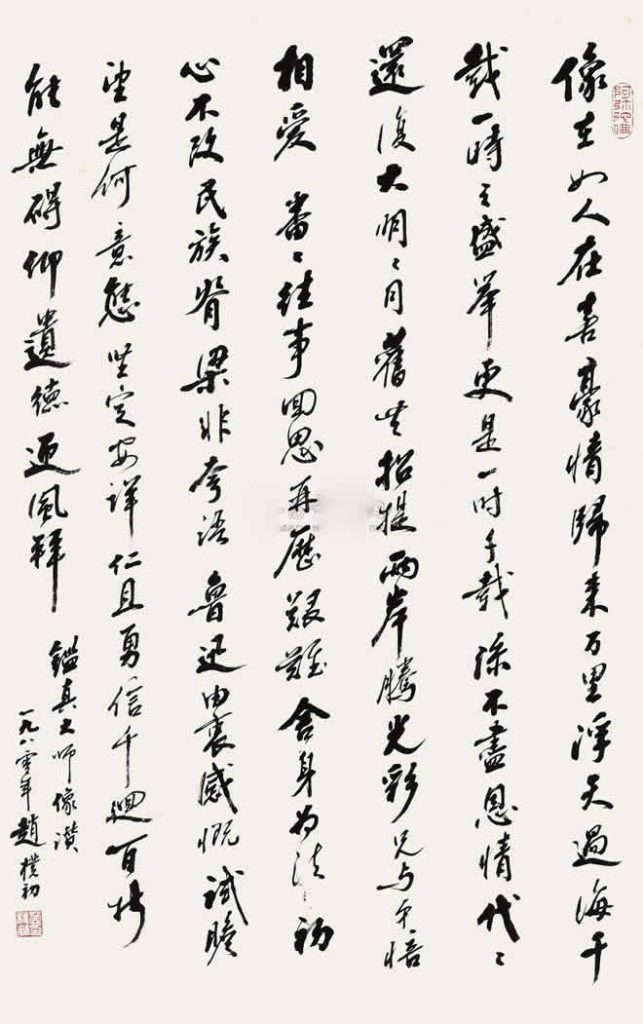 像在如人在喜豪情歸来万里浮天過海千
載一時之盛举更是一时千載添不盡恩情代〻
還復大明〻月舊共招提兩岸騰光彩兄与弟倍
相爱番〻往事回思再歷艱難舍身为法初
心不改民族脊梁非夸语魯迅由衷感慨試瞻
望是何意態坐定安详仁且勇信千迴百折
能無碍仰遺德迎風拜
鑑真大师像讚
一九八零年趙樸初